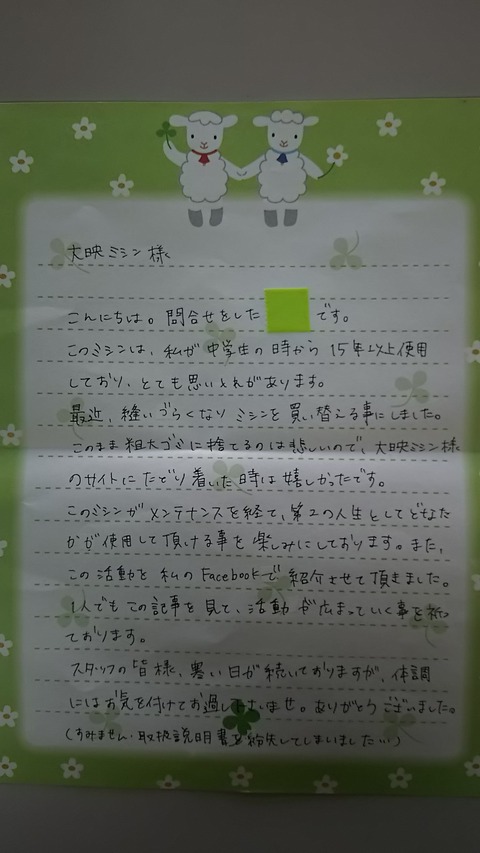 大映ミシン様
こんにちは。問合せをした です。
このミシンは、私が中学生の時から15年以上使用
しており、とても思い入れがあります。
最近、縫いづらくなりミシンを買い替える事にしました。
このまま粗大ゴミに捨てるのは悲しいので、大映ミシン様
のサイトにたどり着いた時は嬉しかったです。
このミシンがメンテナンスを経て、第2の人生としてどなた
かが使用して頂ける事を楽しみにしております。また、
この活動を私のFacebookで紹介させて頂きました。
1人でもこの記事を見て、活動が広まっていく事を祈っ
ております。
スタッフの皆様、寒い日が続いておりますが、体調
にはお気を付けてお過し下さいませ。ありがとうございました。
(すみません・取扱説明書を紛失してしまいました…)